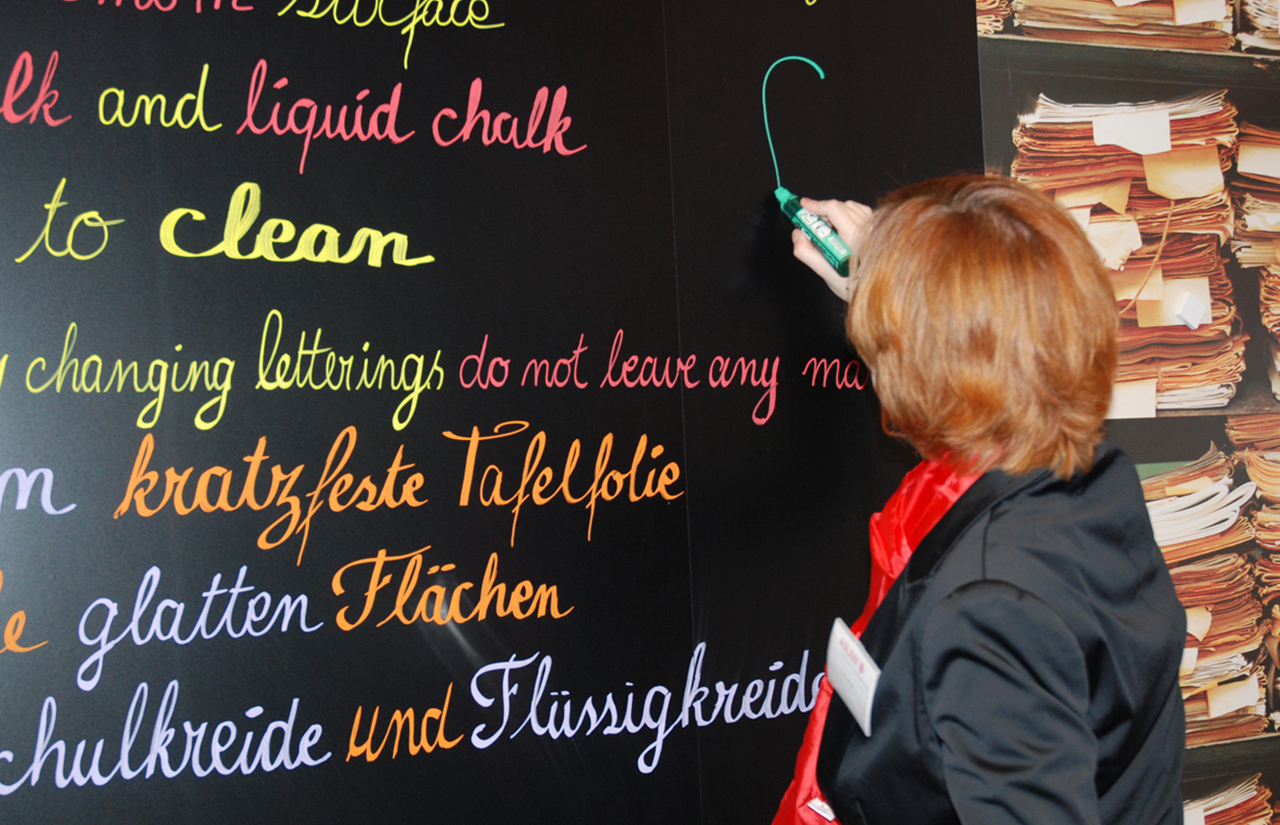 surface
and liquid chalk
to clean
changing letterings do not leave any
kratzfeste Tafelfolie
glatten Flächen
und Flüssigkreide